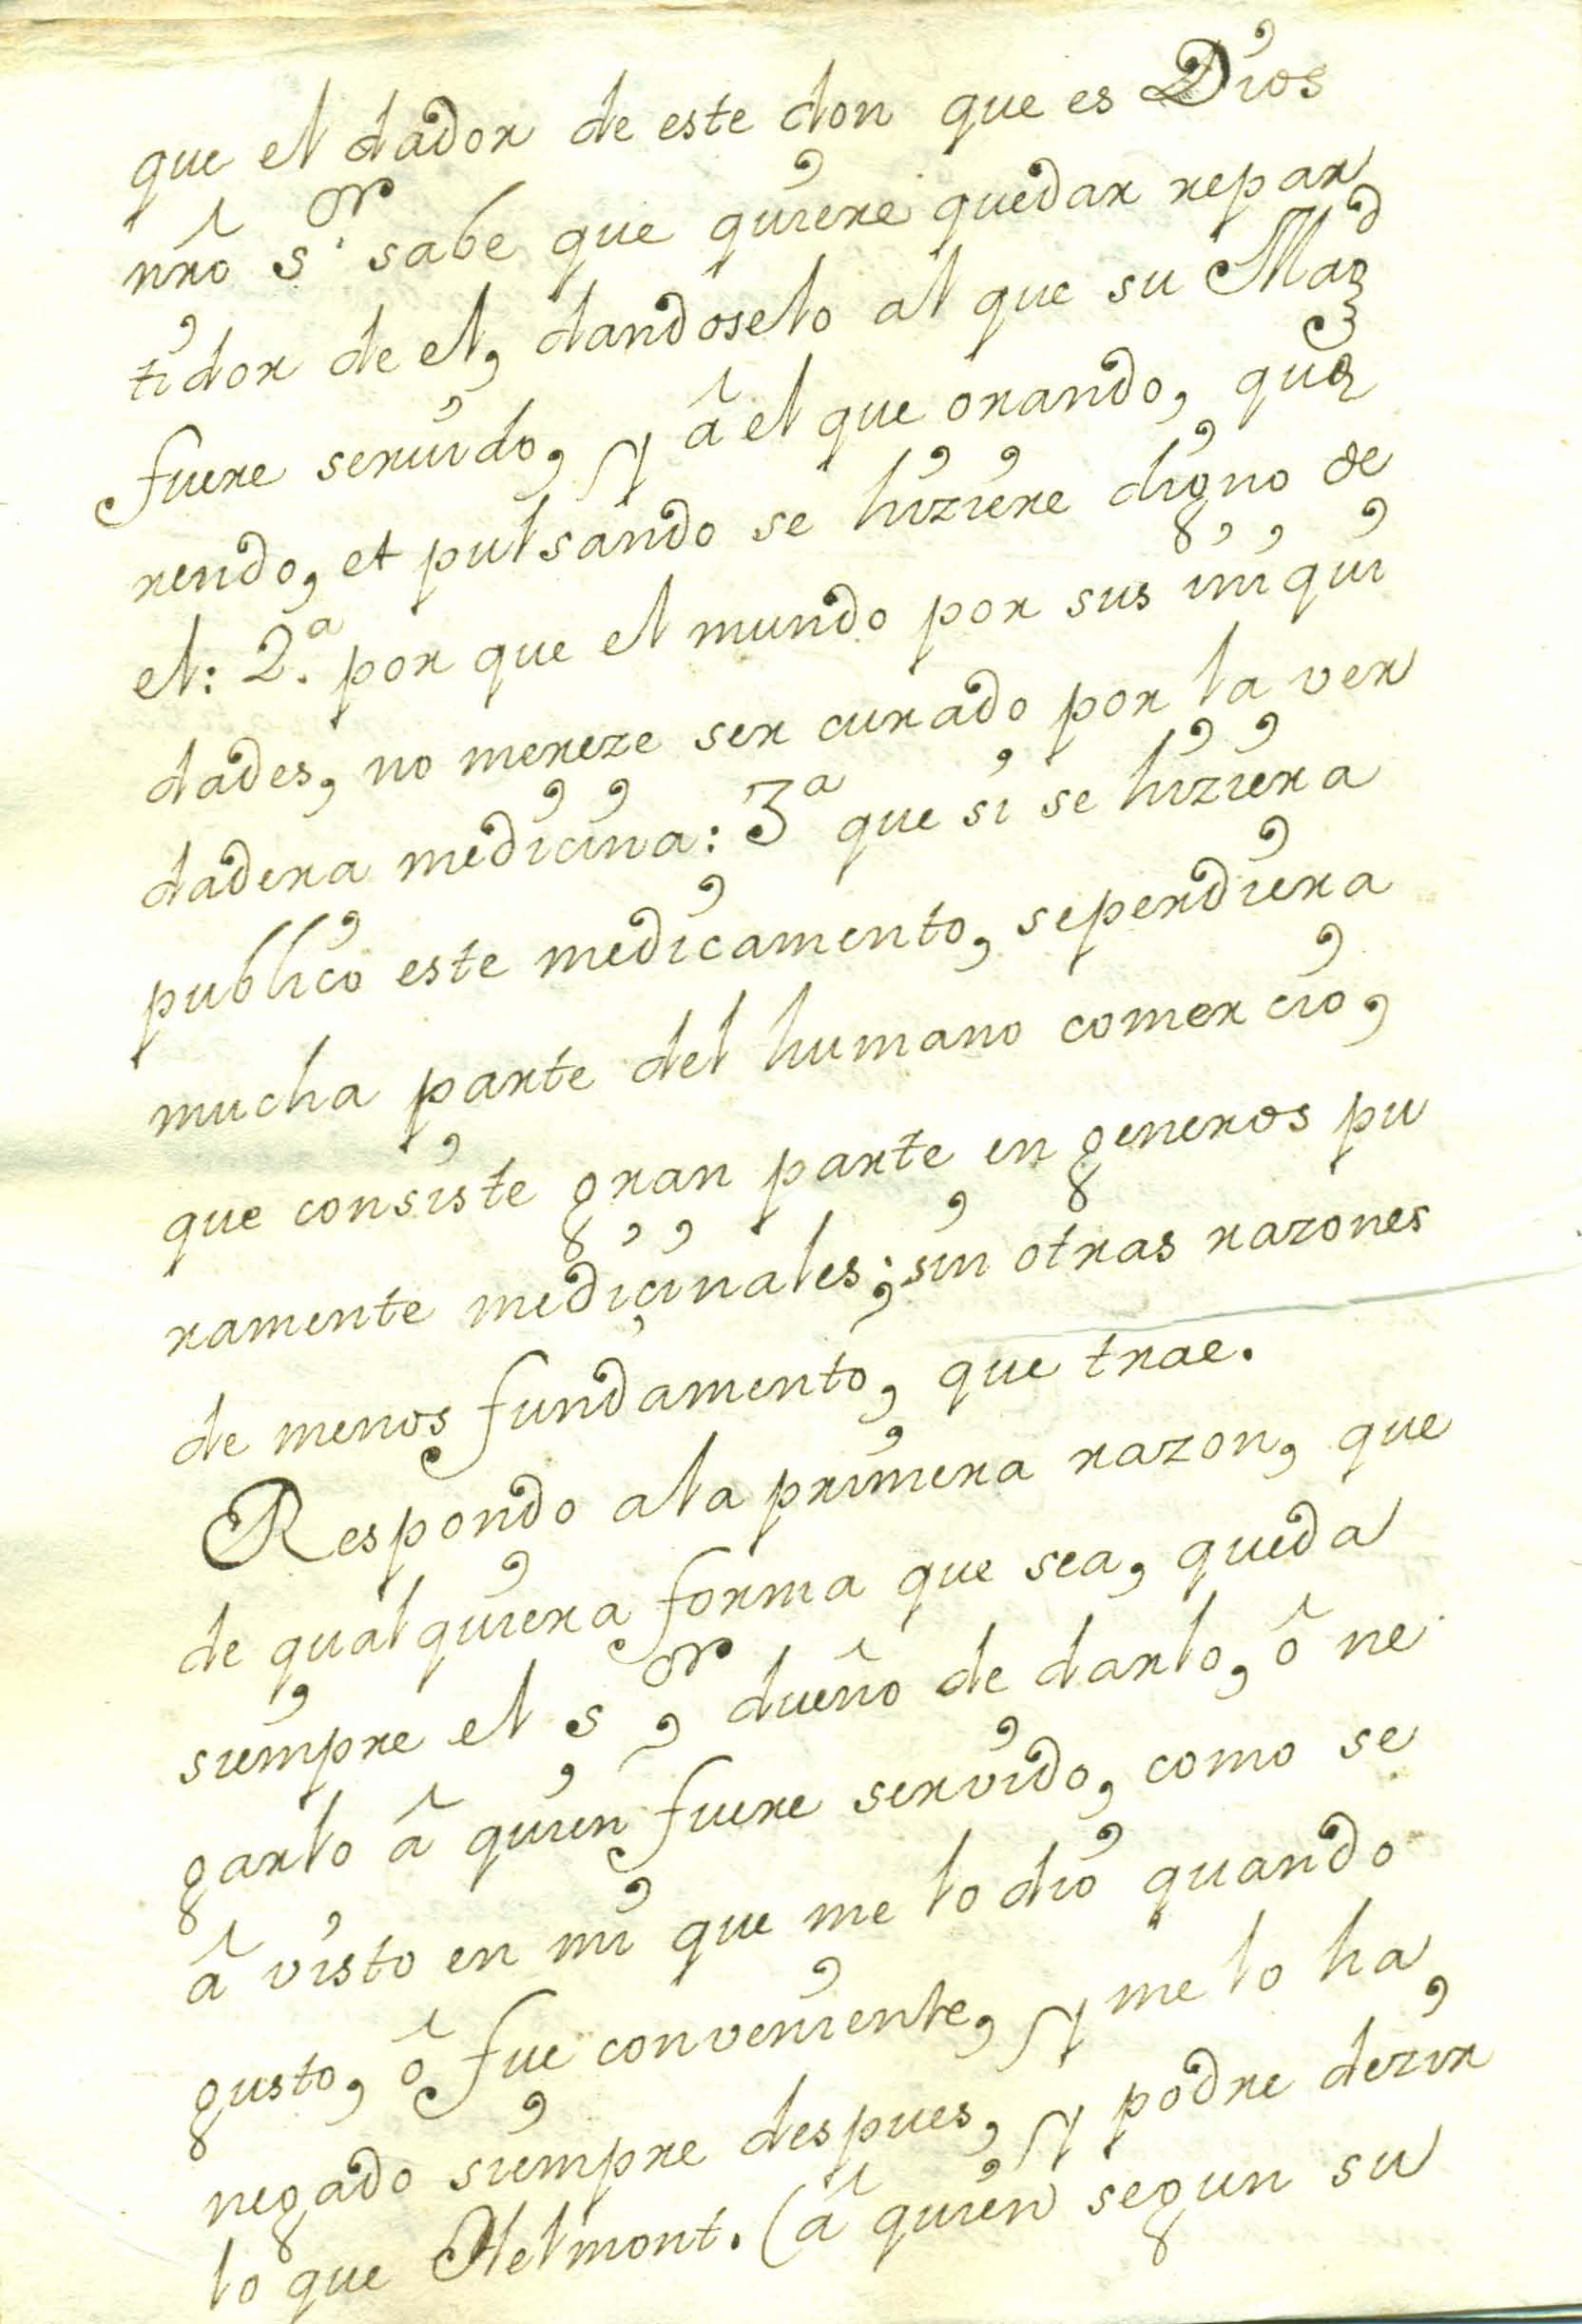 que el dador de este don que es Dios
nrô s.or sabe que quiere quedar repar
tidor de el, dandoselo al que su Magd
fuere seruido, y â el que orando, que
rendo, et pulsando se hiziere digno de
el: 2.a por que el mundo por sus iniqui
dades, no mereze ser curado por la ver
dadera medicina: 3a que si se hiziera
publico este medicamento, se perdiera
mucha parte del humano comercio,
que consiste gran parte en generos pu
ramente mediçinales; sin otras razones
de menos fundamento, que trae.
Respondo a la primera razon, que
de qualquiera forma que sea, queda
siempre el sor, dueño de darlo, ô ne
garlo â quien fuere servido, como se
â visto en mi que me lo dio quando
gusto, ô fue conveniente, y me lo ha
negado siempre despues, y podre dezir
lo que Helmont. (â quien segun su